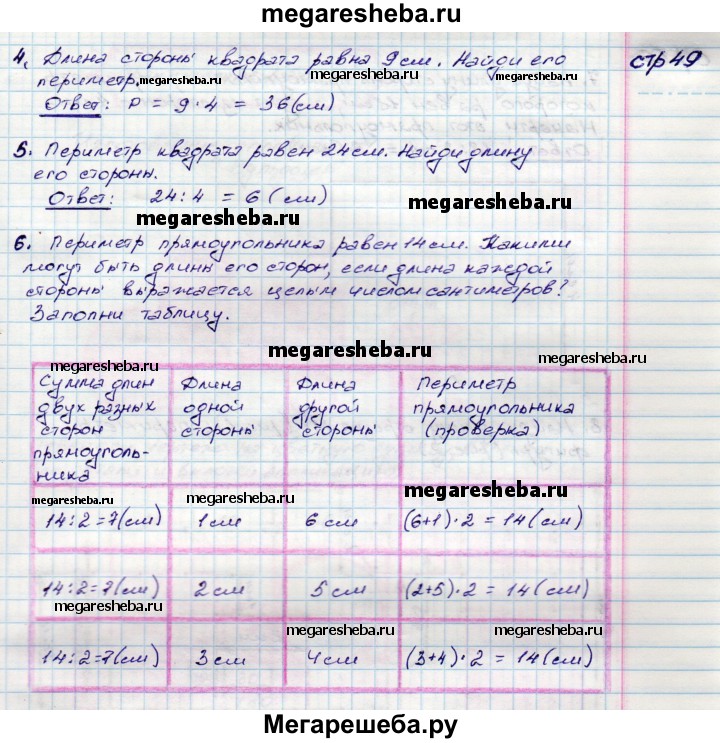 megaresheba.ru
4. Длина стороны квадрата равна 9 см. Найди его стр 49
периметр. megaresheba.ru megaresheba.ru
Ответ: P = 9 · 4 = 36 (см)
5. Периметр квадрата равен 24 см. Найди длину
его стороны.
Ответ: 24 : 4 = 6 (см)
megaresheba.ru megaresheba.ru
6. Периметр прямоугольника равен 14 см. Какими
могут быть длины его сторон, если длина каждой
стороны выражается целым числом сантиметров?
Заполни таблицу.
megaresheba.ru megaresheba.ru
megaresheba.ru
Сумма длин
двух разных
сторон
прямоуголь-
ника
Длина
одной
стороны
Длина
другой
стороны
Периметр
прямоугольника
(проверка)
megaresheba.ru megaresheba.ru megaresheba.ru
14 : 2 = 7 (см) 1 см 6 см (6+1) · 2 = 14 (см)
14 : 2 = 7 (см) 2 см 5 см (2+5) · 2 = 14 (см)
megaresheba.ru
megaresheba.ru megaresheba.ru
14 : 2 = 7 (см) 3 см 4 см (3+4) · 2 = 14 (см)
Мегарешеба.ру